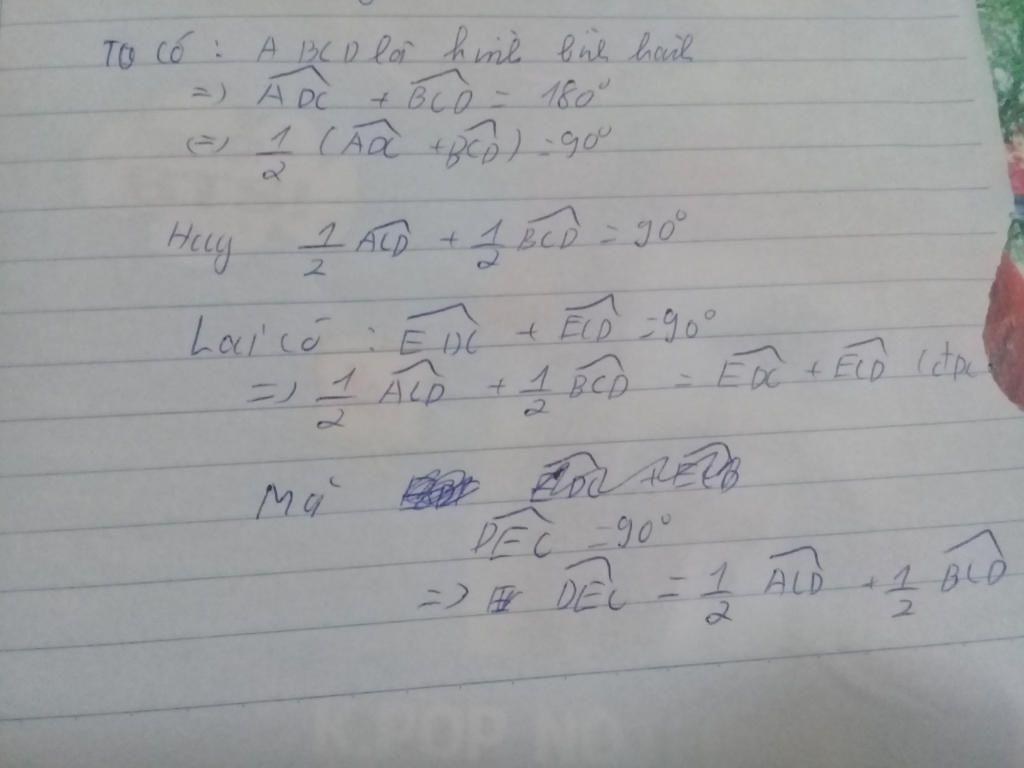 Ta có : ABCD là hình bình hành
=> \widehat{ADC} + \widehat{BCD} = 180°
(=) \frac{1}{2} (\widehat{ADC} + \widehat{BCD}) = 90°
Hay \frac{1}{2} \widehat{ACD} + \frac{1}{2} \widehat{BCD} = 90°
Lại có : \widehat{EDC} + \widehat{ECD} = 90°
=> \frac{1}{2} \widehat{ACD} + \frac{1}{2} \widehat{BCD} = \widehat{EDC} + \widehat{ECD}
Mà
\widehat{DEC} = 90°
=> \widehat{DEC} = \frac{1}{2} \widehat{ACD} + \frac{1}{2} \widehat{BCD}
K.POP NO